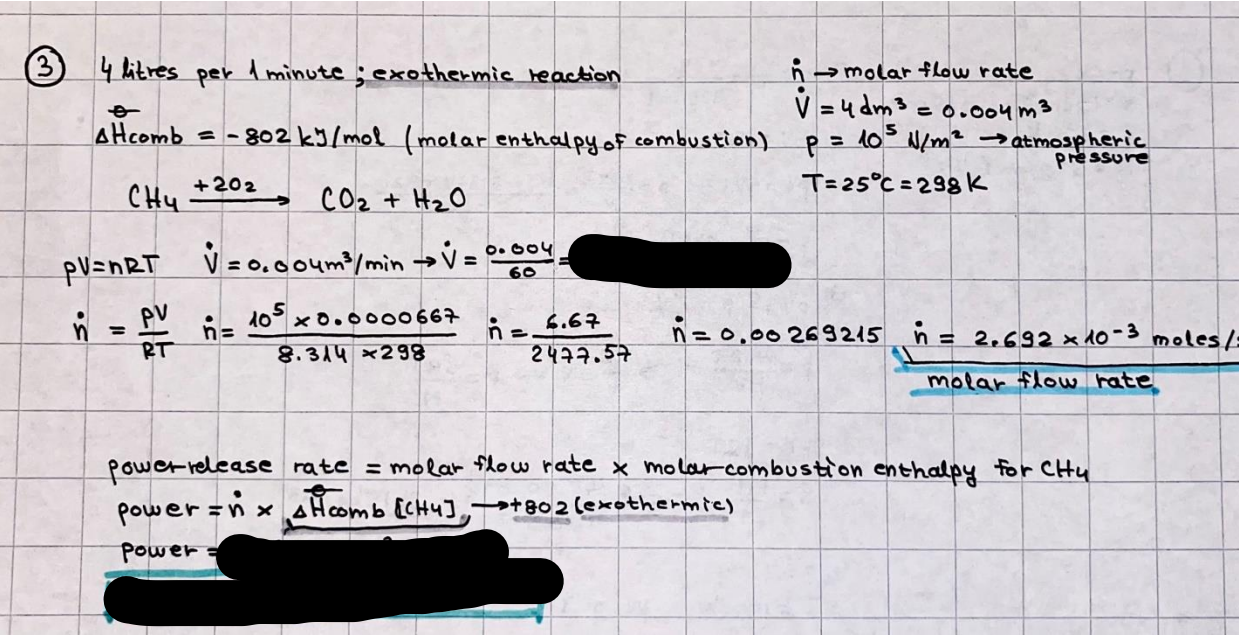 ③ 4 litres per 1 minute ; exothermic reaction
ΔH⦵comb = -802 kJ/mol (molar enthalpy of combustion)
ṅ → molar flow rate
V̇ = 4 dm³ = 0.004 m³
p = 10⁵ N/m² → atmospheric pressure
T = 25°C = 298 K
CH4 +2O2 → CO2 + H2O
pV=nRT V̇ = 0.004m³/min → V̇ = 0.004/60 =
ṅ = pV/RT ṅ = 10⁵ × 0.0000667 / 8.314 × 298 ṅ = 6.67/2477.57 ṅ = 0.00269215 ṅ = 2.692 × 10⁻³ moles/
molar flow rate
power release rate = molar flow rate × molar combustion enthalpy for CH4
power = ṅ × ΔH⦵comb [CH4] → +802 (exothermic)
power =